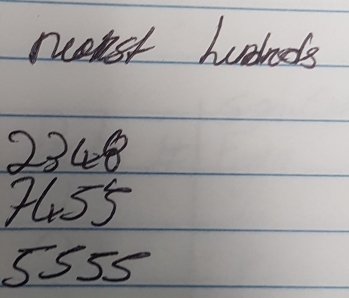 nearest hundreds
2348
7455
5555